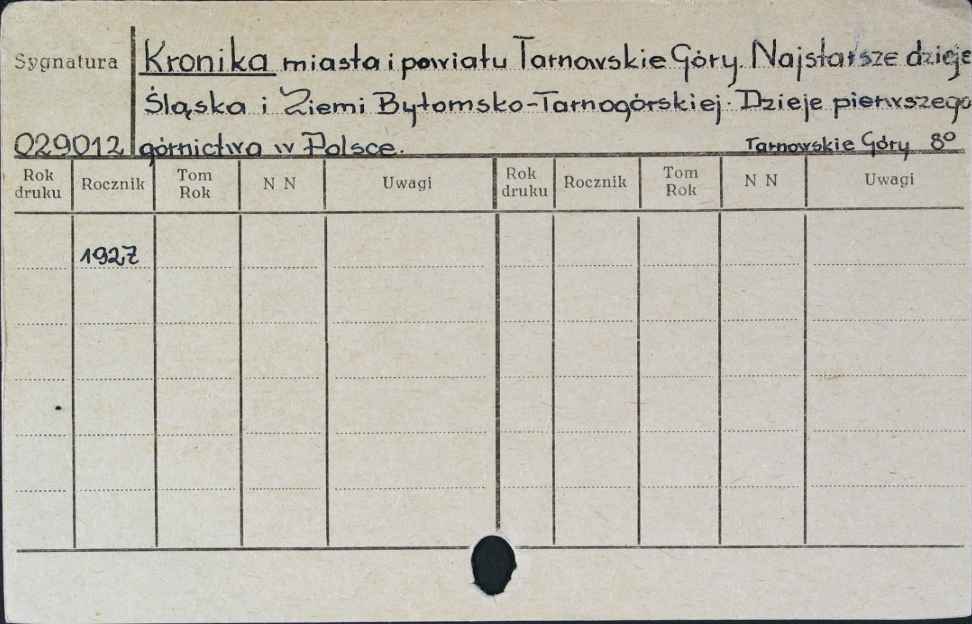 Sygnatura
Kronika miasta i powiatu Tarnowskie Góry. Najstarsze dzieje
Śląska i Ziemi Bytomsko-Tarnogórskiej. Dzieje pierwszego
029012 górnictwa w Polsce. Tarnowskie Góry 8°
Rok druku Rocznik Tom Rok N N Uwagi Rok druku Rocznik Tom Rok N N Uwagi
1927